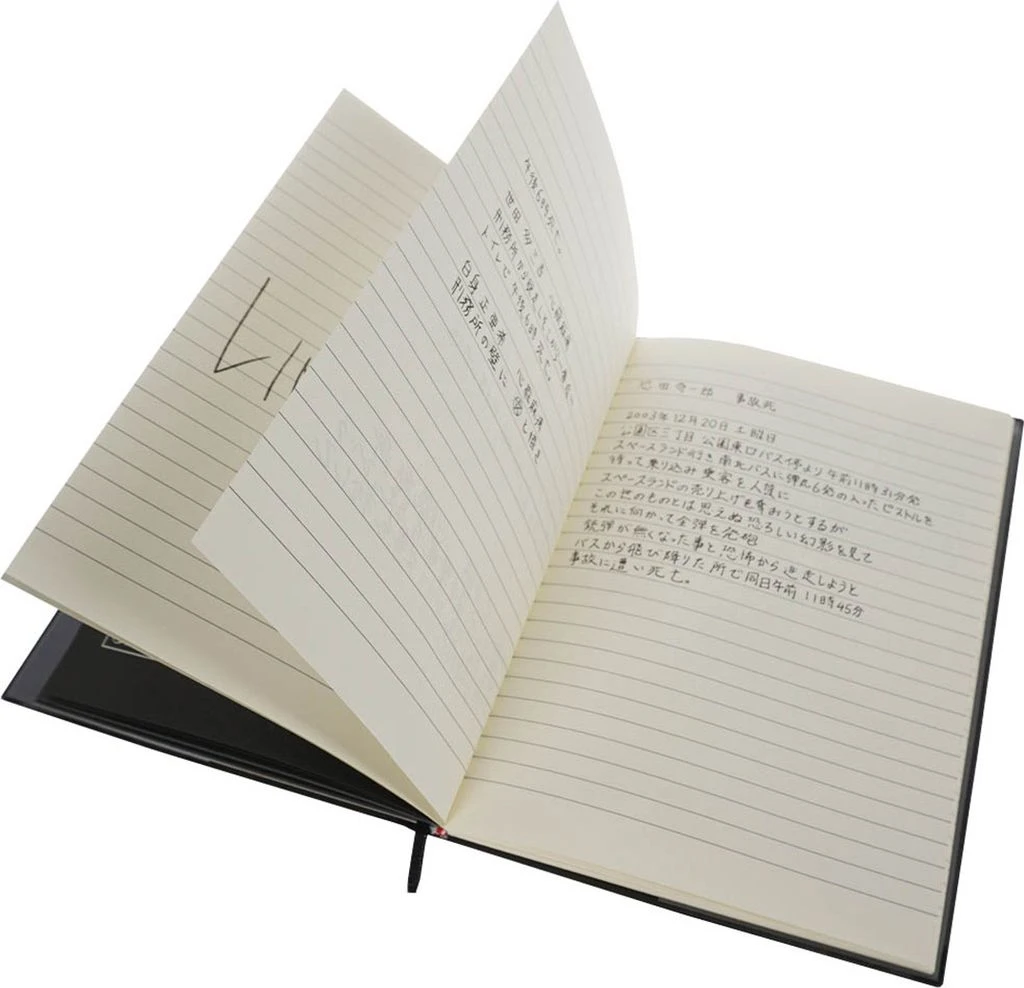 午後6時死亡。
世田 心臓麻痺
刑務所から脱走しそこから一番近い
トイレで午後6時死亡。
白身正 心臓麻痺
刑務所の壁に と描き
田 一郎 事故死
2003年12月20日 土曜日
公園区三丁目 公園東口バス停より午前11時31分発
スペースランド行き 南北バスに弾丸6発の入ったピストルを
持って乗り込み 乗客を人質に
スペースランドの売り上げを奪おうとするが
この世のものとは思えぬ恐ろしい幻影を見て
それに向かって全弾を発砲
銃弾が無くなった事と恐怖から逃走しようと
バスから飛び降りた所で同日午前11時45分
事故に遭い死亡。